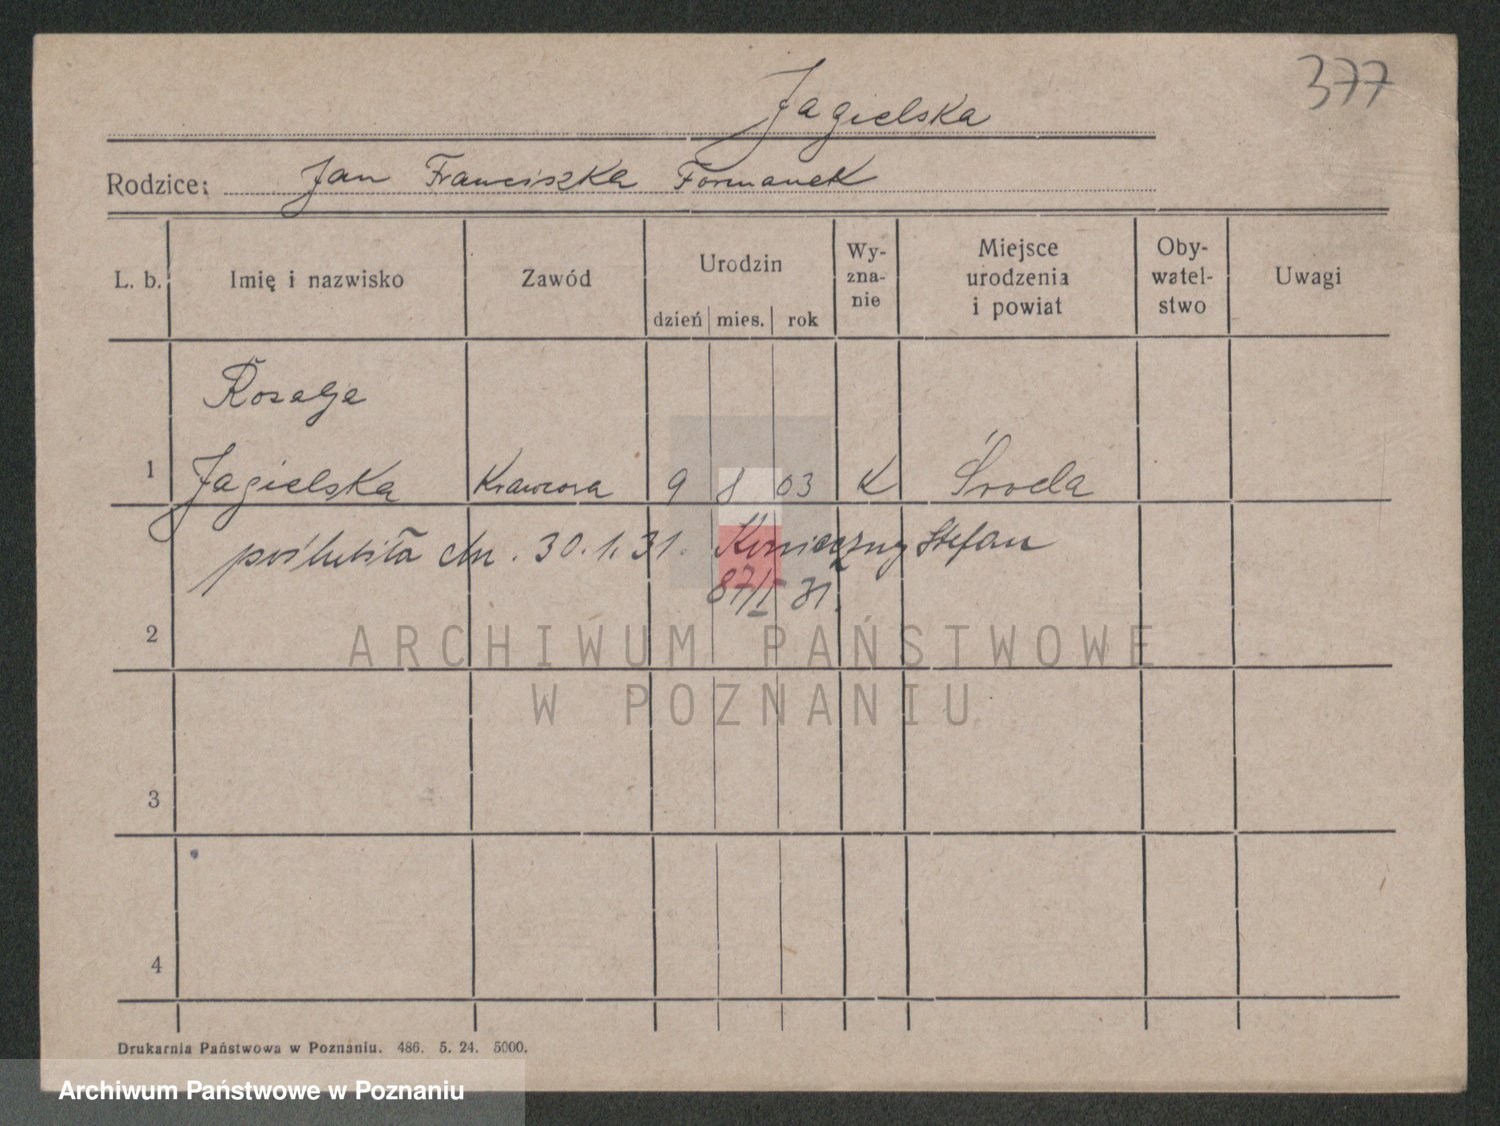 377
Jagielska
Rodzice: Jan Franciszka Formanek
L. b. Imię i nazwisko Zawód Urodzin dzień mies. rok Wy-zna-nie Miejsce urodzenia i powiat Oby-watel-stwo Uwagi
Rozalja
1 Jagielska Krawcowa 9 8 03 K Środa
poślubiła dn. 30.1.31. Konieczny Stefan
87/I 31.
2
ARCHIWUM PAŃSTWOWE
W POZNANIU
3
4
Drukarnia Państwowa w Poznaniu. 486. 5. 24. 5000.
Archiwum Państwowe w Poznaniu